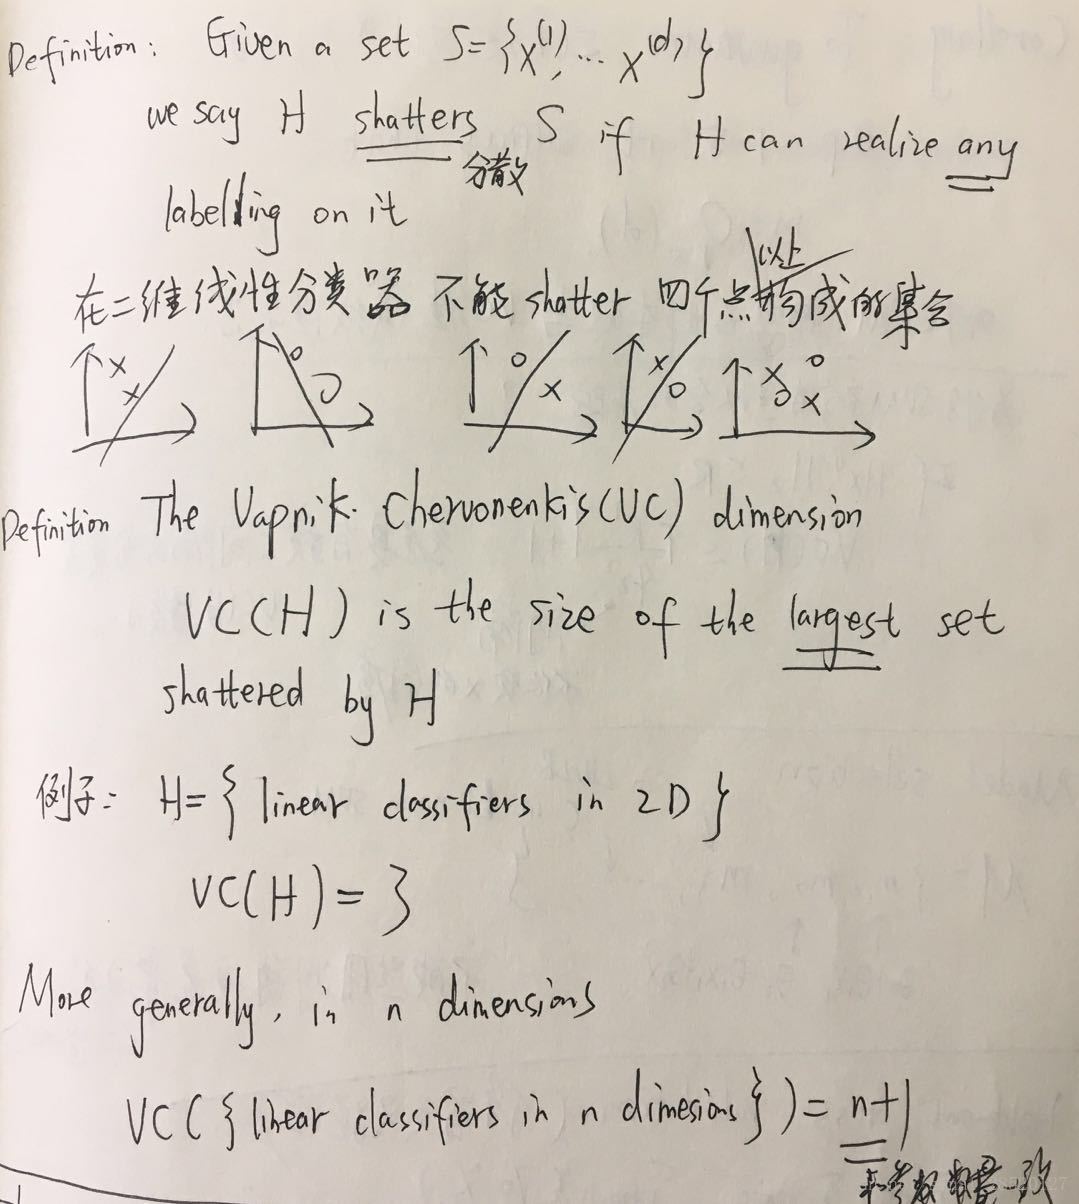 Definition: Given a set S={x⁽¹⁾, ... x⁽ᵈ⁾}
we say H shatters S if H can realize any
分散
labelling on it
以上
在二维线性分类器 不能 shatter 四个点构成的集合
Definition The Vapnik. Chervonenkis(VC) dimension
VC(H) is the size of the largest set
shattered by H
例子: H={ linear classifiers in 2D }
VC(H) = 3
More generally, in n dimensions
VC({linear classifiers in n dimesions}) = n+1
和参数数量一致